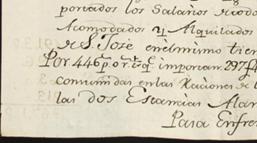 portados los Salarios de todos
Acomodados y Alquilados
de S. Jose en el mismo tiem
Por 446 p. or. q. importan. 297 f
consumidas en las Raciones de l
las dos Estancias Mar
Para Enfre